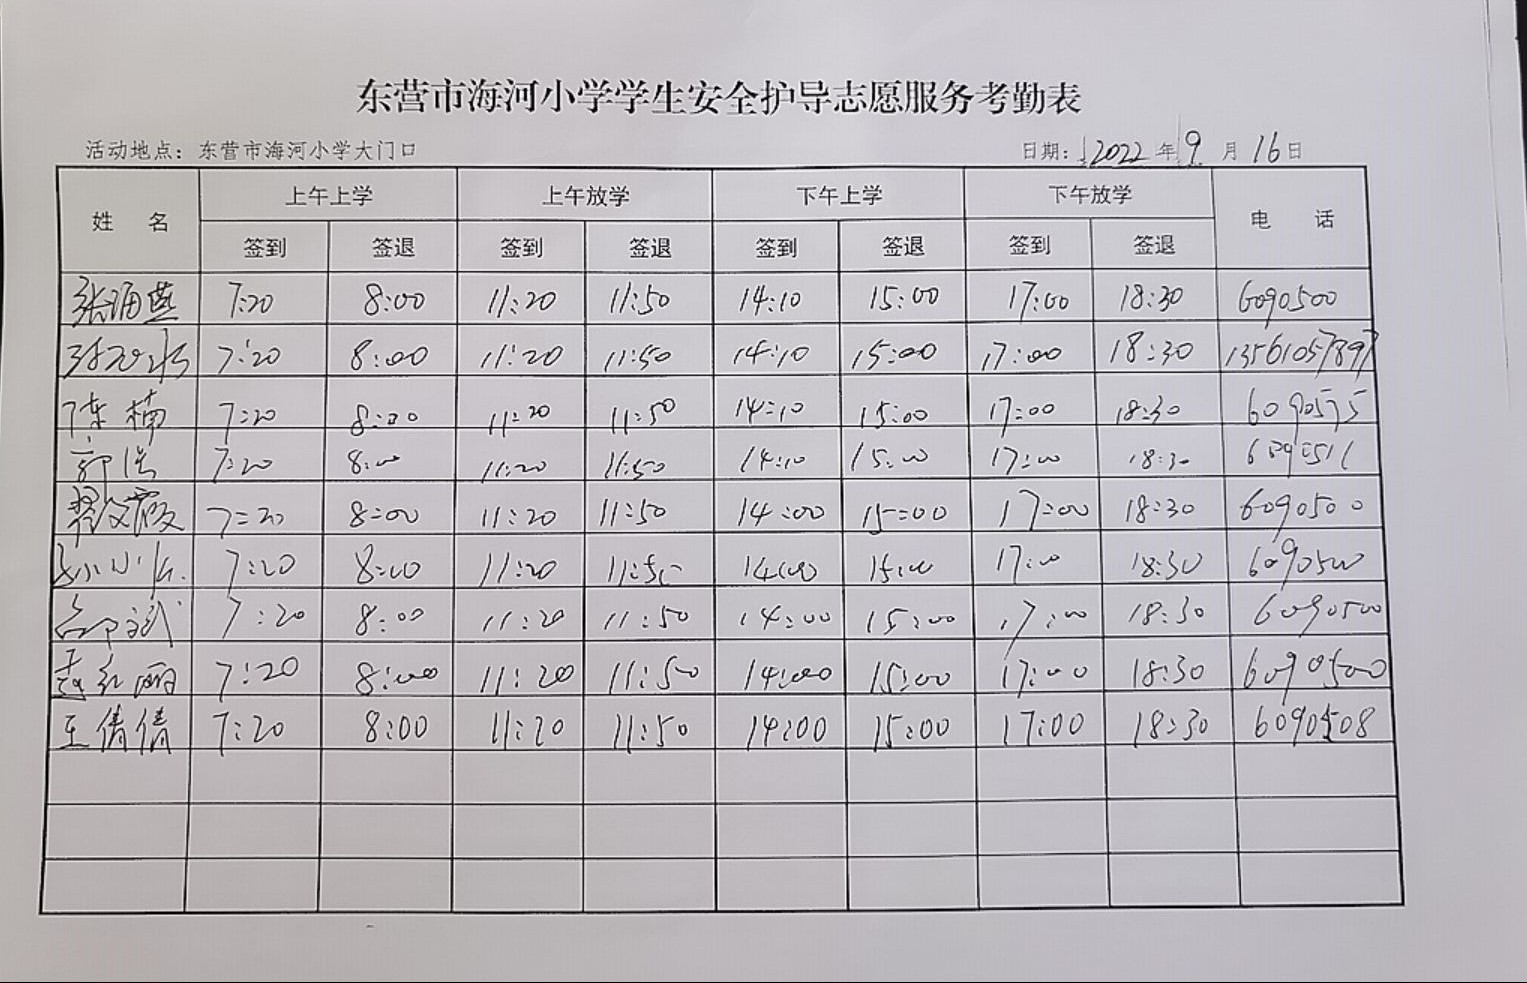 东营市海河小学学生安全护导志愿服务考勤表
活动地点：东营市海河小学大门口 日期：2022年9月16日
姓 名 上午上学 上午放学 下午上学 下午放学 电 话
签到 签退 签到 签退 签到 签退 签到 签退
张涌燕 7:20 8:00 11:20 11:50 14:10 15:00 17:00 18:30 6090500
7:20 8:00 11:20 11:50 14:10 15:00 17:00 18:30 13561057897
陈楠 7:20 8:00 11:20 11:50 14:10 15:00 17:00 18:30 6090575
郭浩 7:20 8:00 11:20 11:50 14:10 15:00 17:00 18:30 6090511
翟文霞 7:20 8:00 11:20 11:50 14:00 15:00 17:00 18:30 6090500
7:20 8:00 11:20 11:50 14:00 15:00 17:00 18:30 6090500
7:20 8:00 11:20 11:50 14:00 15:00 17:00 18:30 6090500
赵红丽 7:20 8:00 11:20 11:50 14:00 15:00 17:00 18:30 6090500
王倩倩 7:20 8:00 11:20 11:50 14:00 15:00 17:00 18:30 6090508